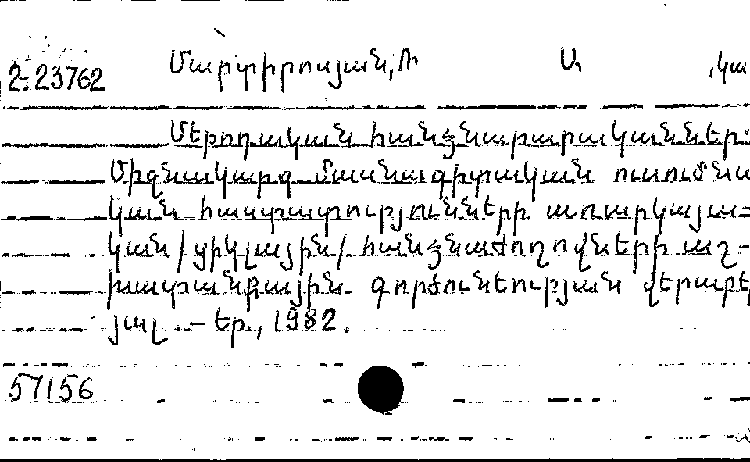 2-23762 Մարտիրոսյան, Ռ Ա. ,կա
Մեթոդական հանձնարարականներ
Միջնակարգ մասնագիտական ուսումնա
կան հաստատությունների առարկայա-
կան /ցիկլային/ հանձնաժողովների աշ-
խատանքային գործունեության վերաբե
յալ .- Եր., 1982.
57156